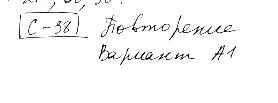 С-38 Повторение
Вариант А1